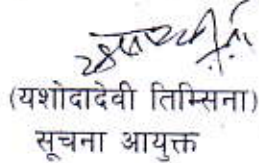 (यशोदादेवी तिम्सिना)
सूचना आयुक्त